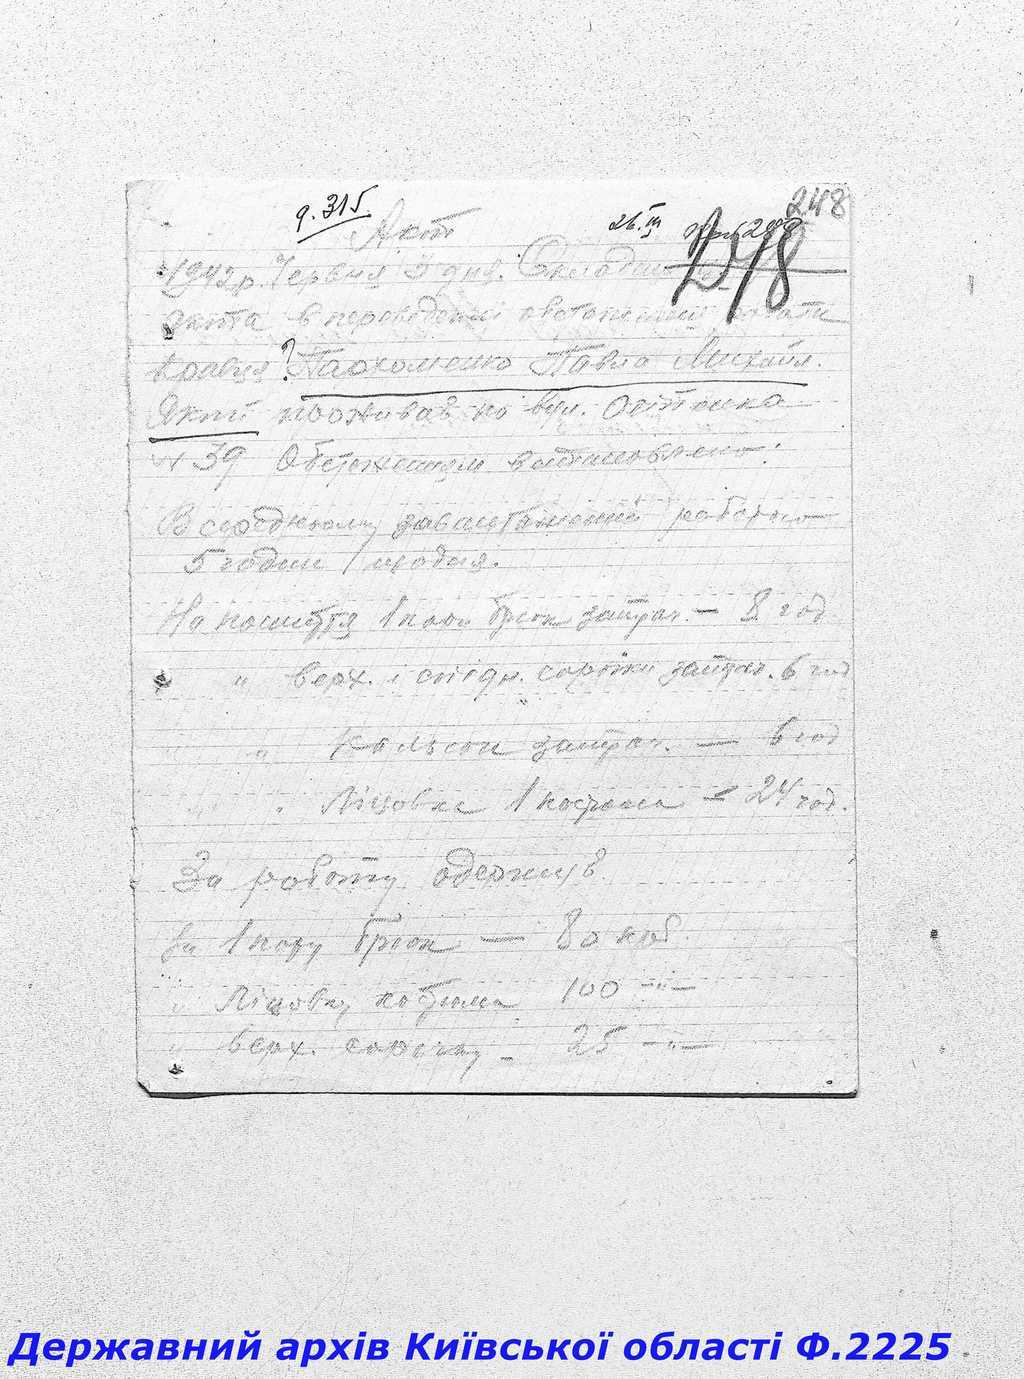 248
д. 315
26.III
D48
Акт
1942р. Червня 5 дня. Складаний
Акта в
Кравця ? Пархоменко Павла Михайл.
Який проживав по вул.
№ 39 Обстеженням встановлено:
В середньому завантажений роботою
5 годин щодня.
На пошиття 1 пари брюк затрач. – 8 год
" верх. і спідн. сорочки затрач. 6 год
" Кальсон затрач. — 6 год
" Ліцовка 1 костюма – 24 год.
За роботу одержив
За 1 пару брюк — 80 крб.
" Ліцовку костюма 100 –"–
" верх. сорочку – 25 –"–
Державний архів Київської області Ф.2225